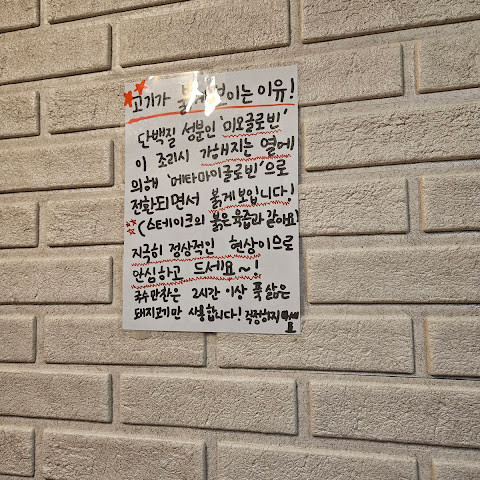 고기가 붉게 보이는 이유!
단백질 성분인 '미오글로빈'
이 조리시 가해지는 열에
의해 '메타마이글로빈'으로
전환되면서 붉게보입니다!
(스테이크의 붉은 육즙과 같아요)
지극히 정상적인 현상이므로
안심하고 드세요~!
국수만찬은 2시간 이상 푹 삶은
돼지고기만 사용합니다! 걱정하지마세
요